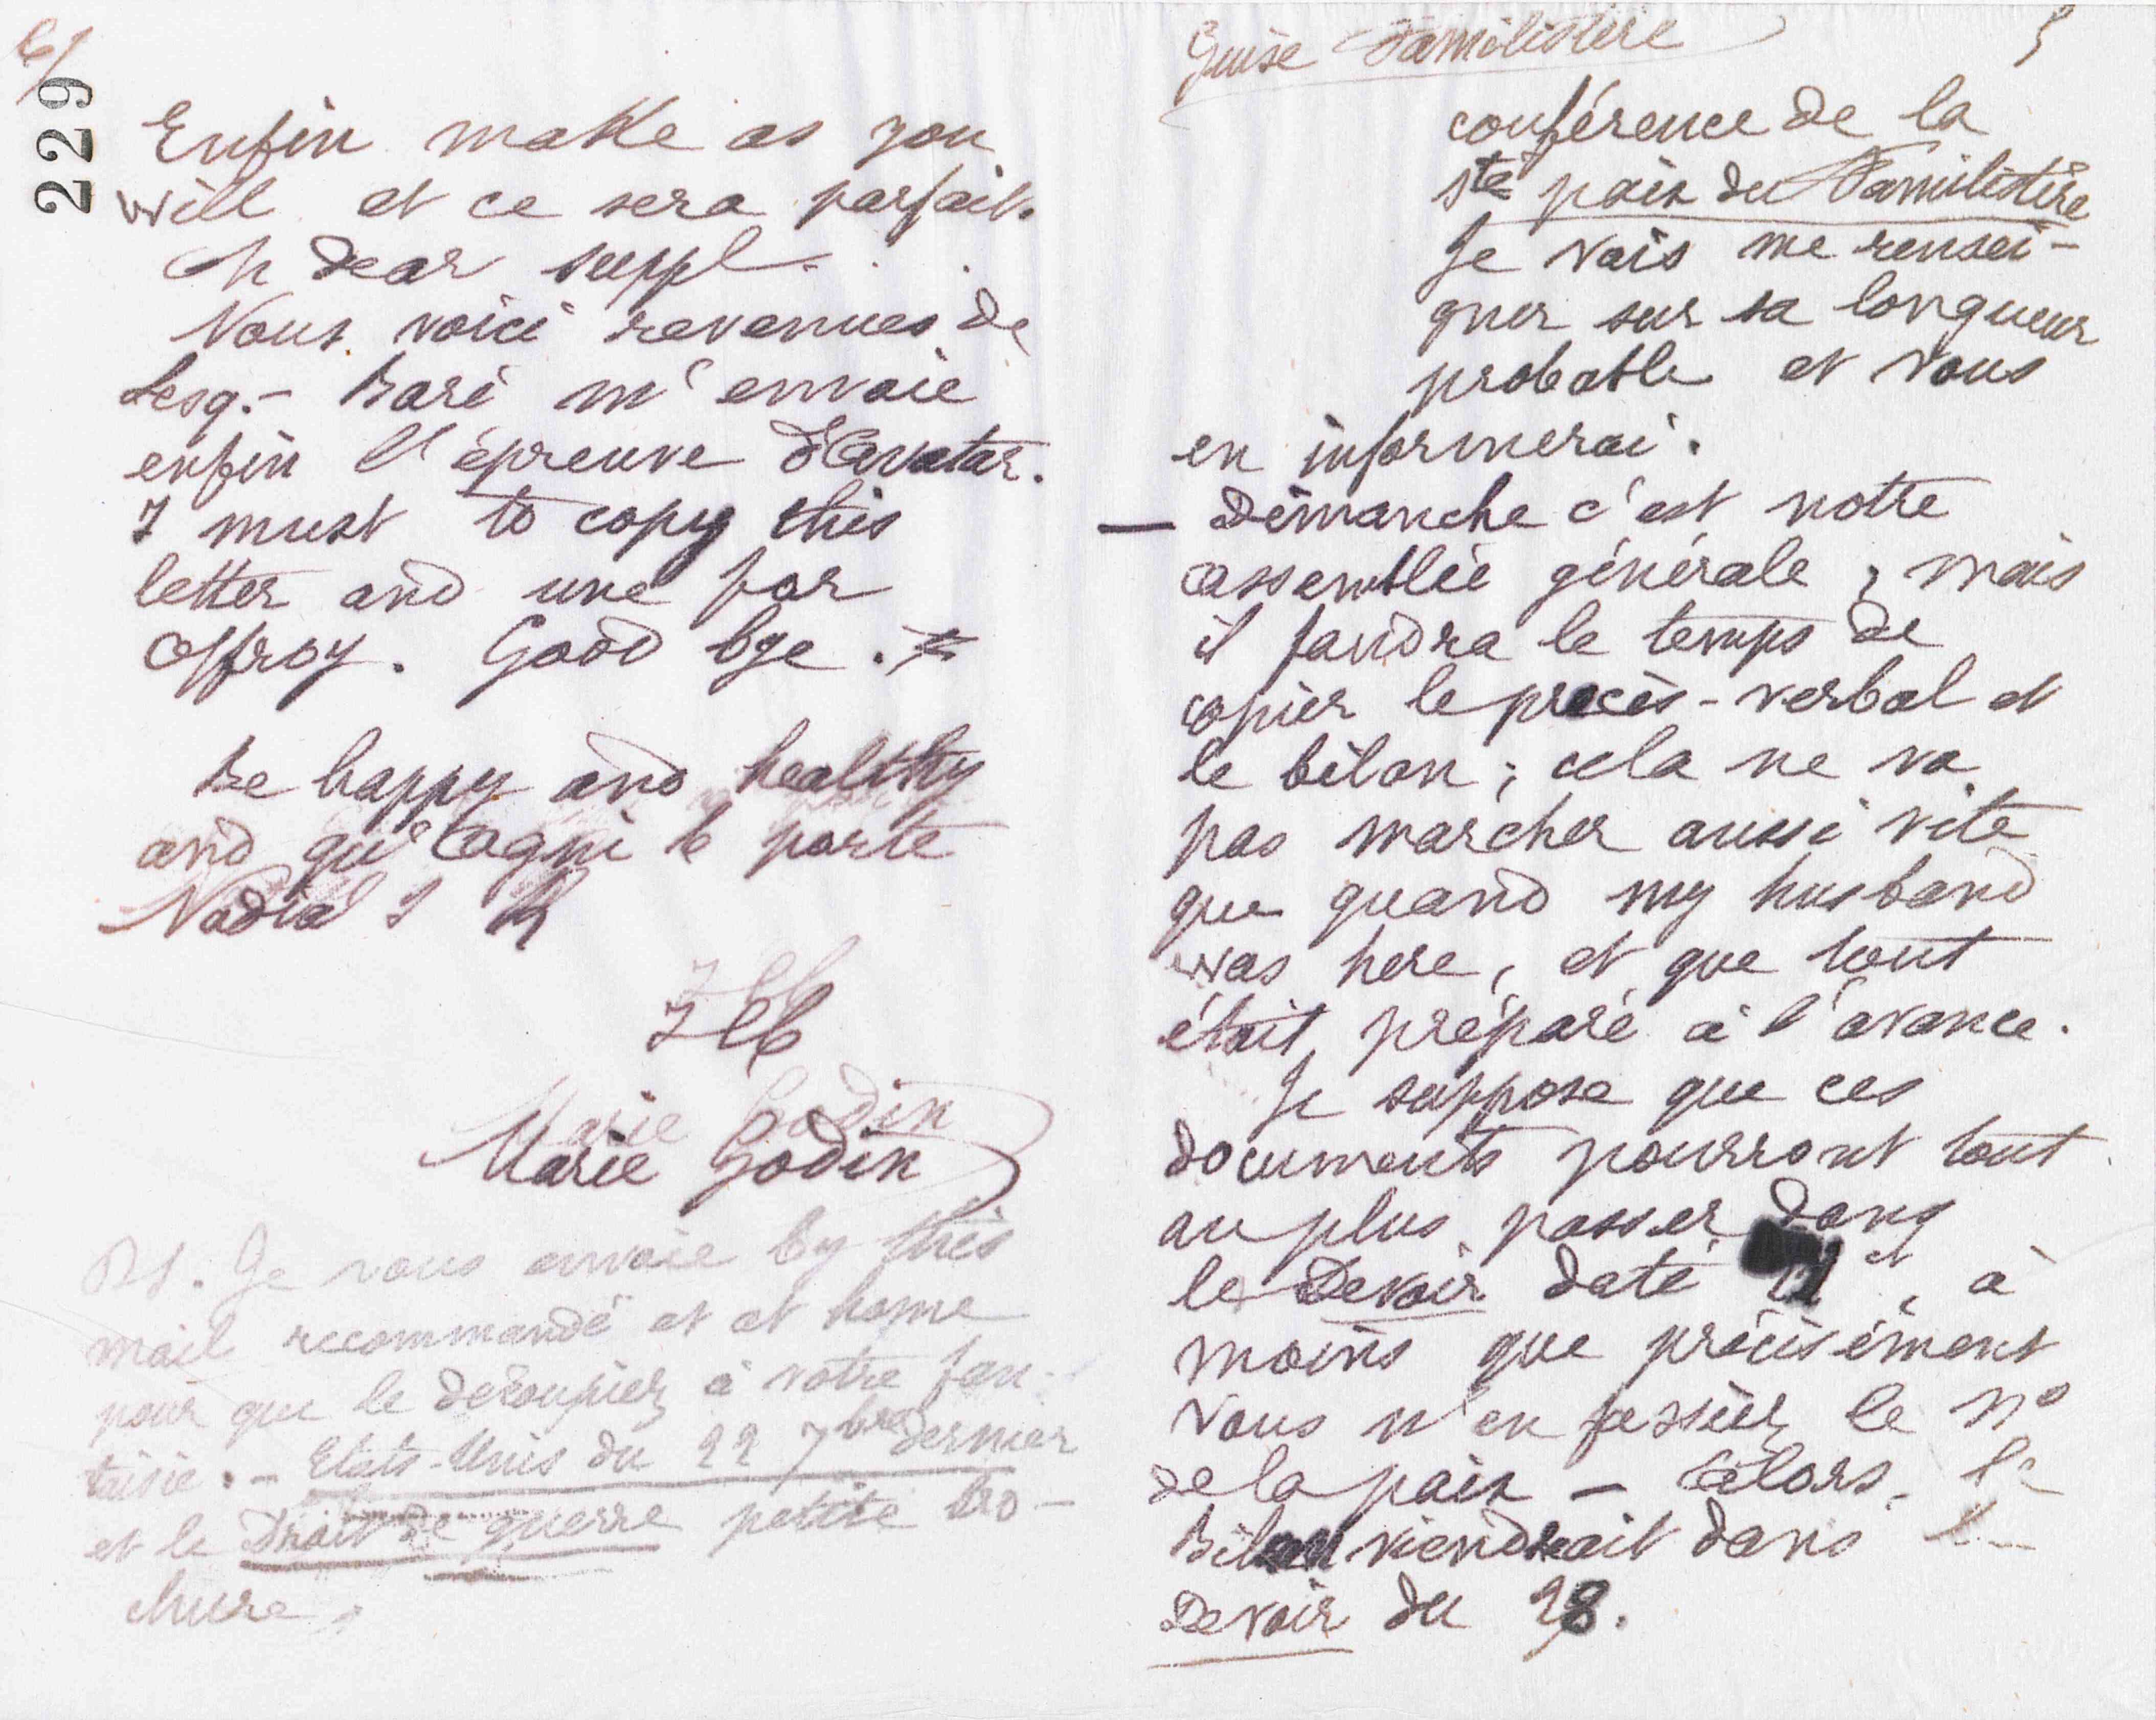 6/
229
Enfin make as you
will et ce sera parfait.
Oh dear suppl.
Nous voici revenues de
Lesq.- Baré m'envoie
enfin l'épreuve d'Avatar.
I must to copy this
letter and une for
Offroy. Good bye.
Be happy and healthy
and qu'Agni te porte
Nadia
Marie Godin
PS. Je vous envoie by this
mail recommandé et at home
pour que le découpiez à votre fan-
taisie. - Etats-Unis du 22 7bre dernier
et le Droit de guerre petite bro-
chure.
Guise Familistère
5
conférence de la
sté paix du Familistère
Je vais me rensei-
gner sur sa longueur
probable et vous
en informerai.
— Dimanche c'est notre
assemblée générale ; mais
il faudra le temps de
copier le procès-verbal et
le bilan ; cela ne va
pas marcher aussi vite
que quand my husband
was here, et que tout
était préparé à l'avance.
Je suppose que ces
documents pourront tout
au plus passer dans
le Devoir daté 21, à
moins que précisément
vous n'en fassiez le no
de la paix - Alors, le
Bilan viendrait dans le
Devoir du 28.